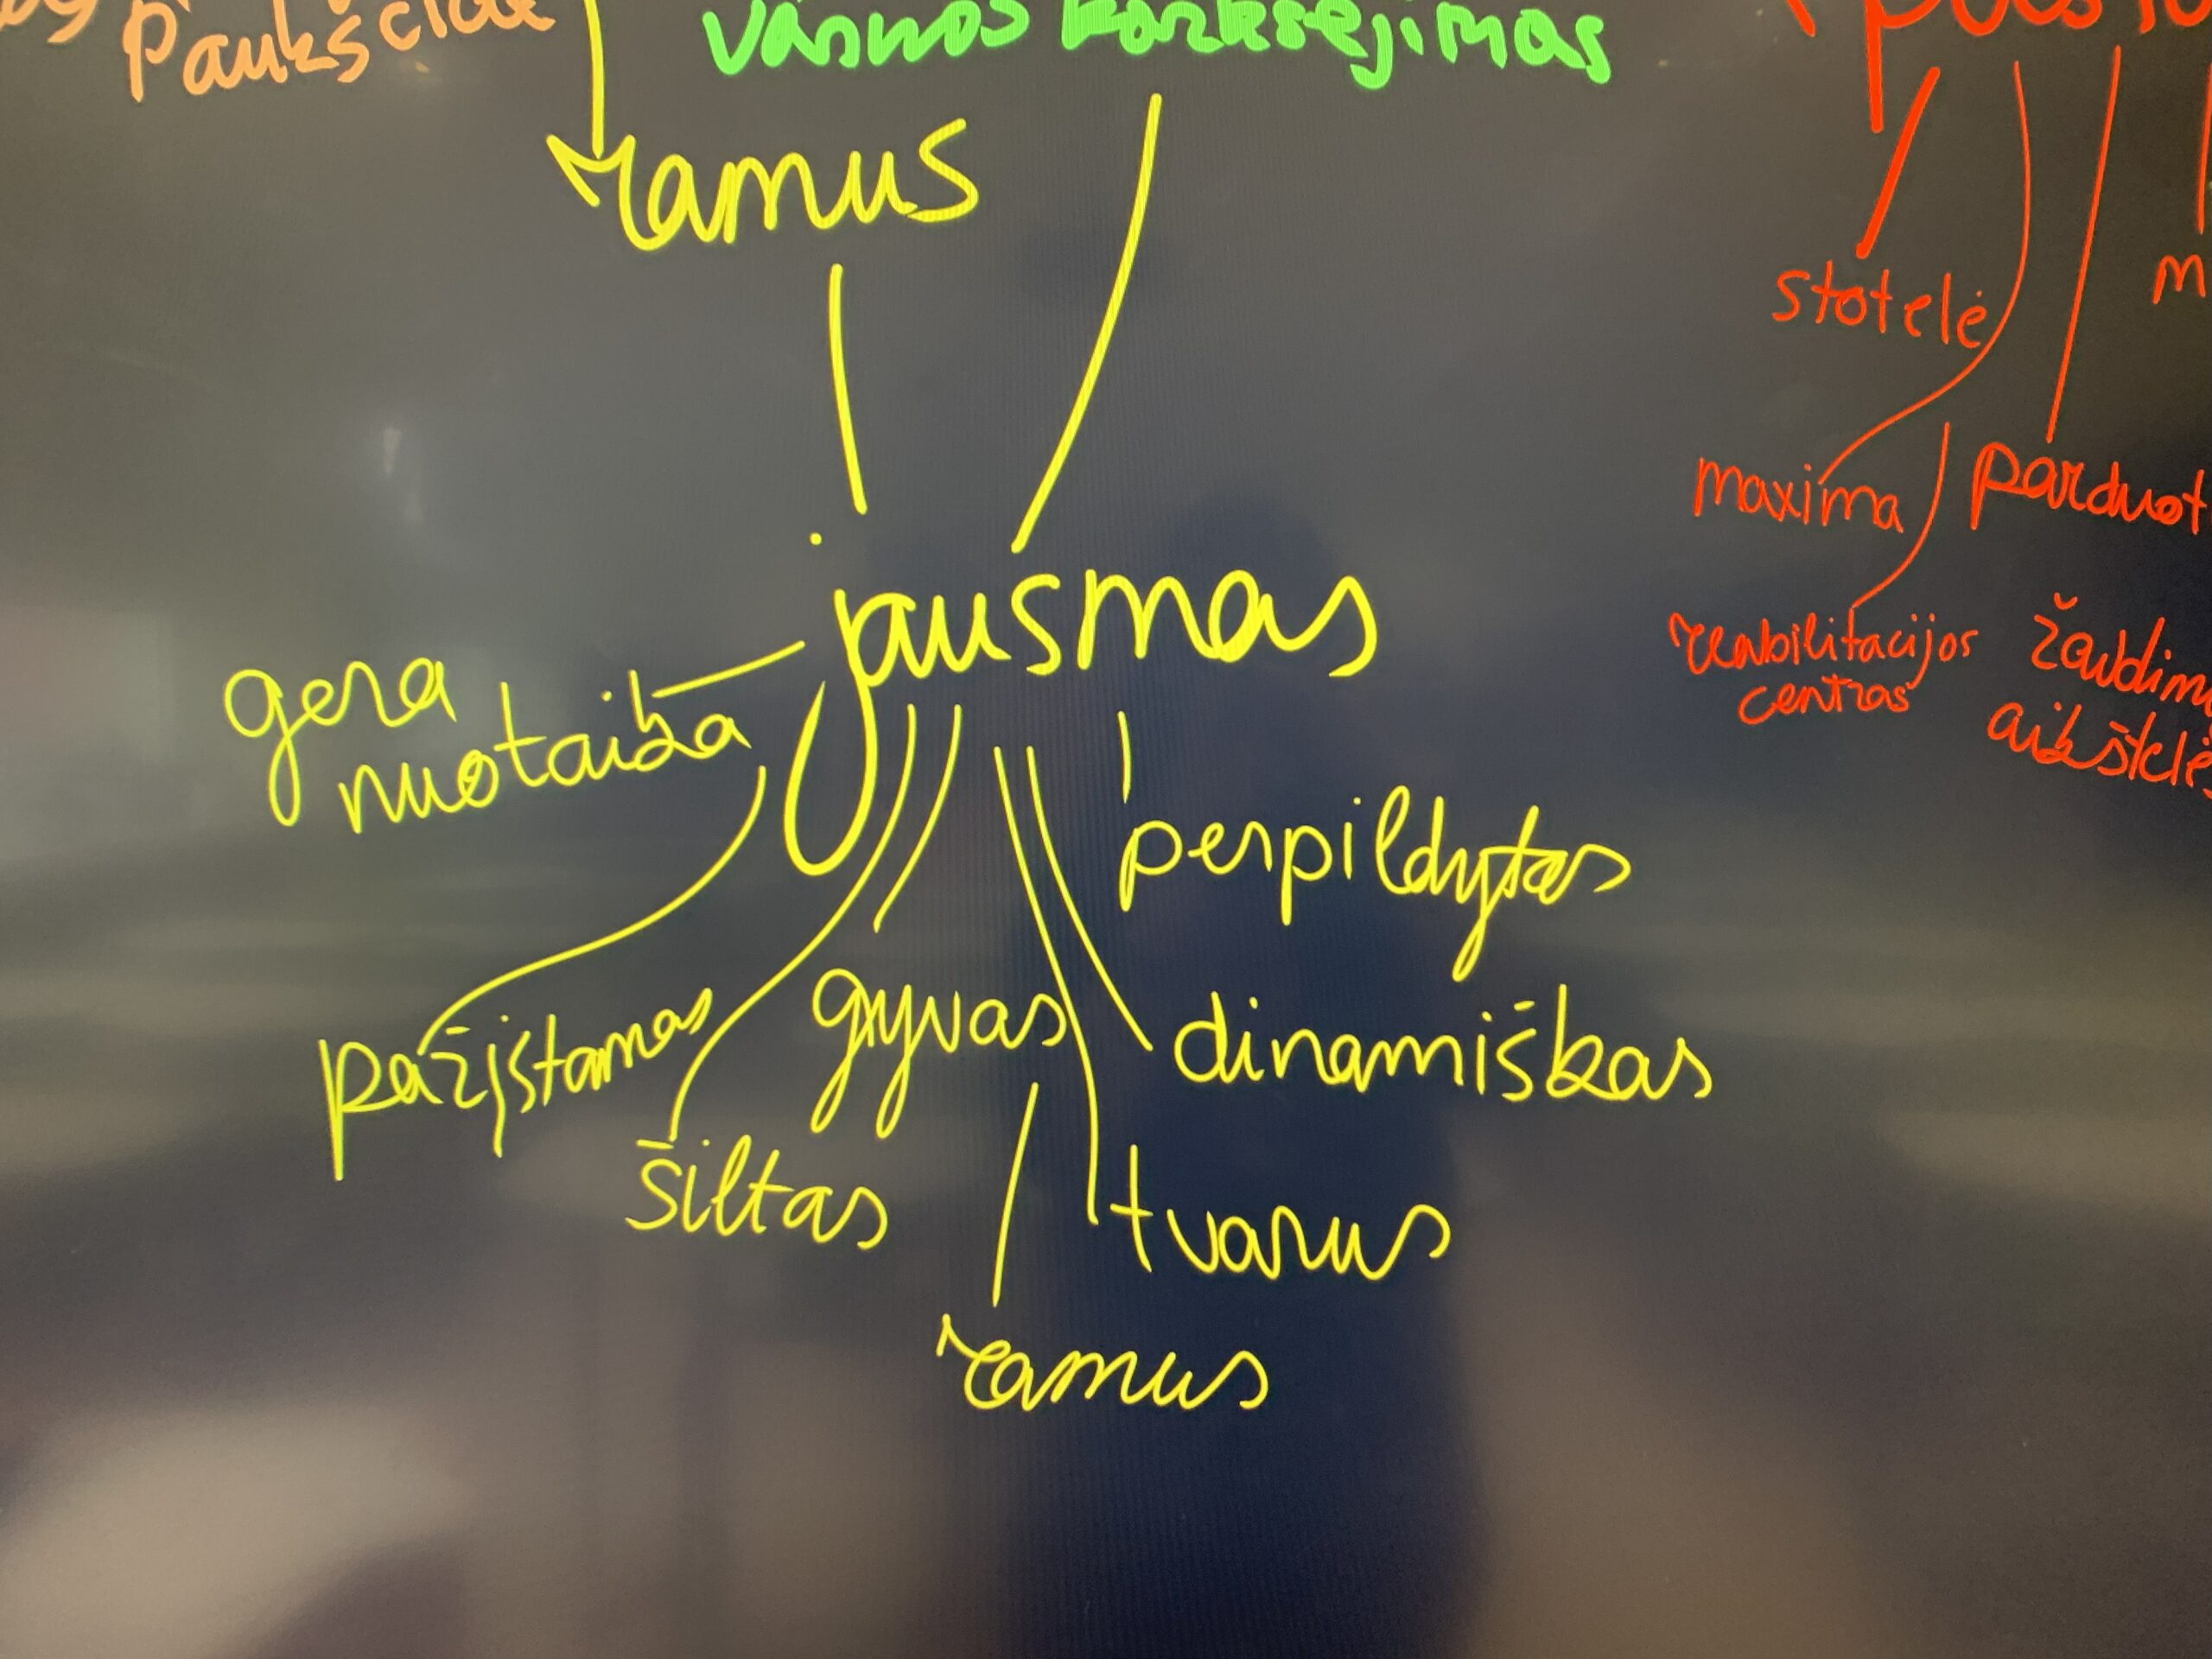 Paukščiai
varnos karksėjimas
ramus
stotelė
maxima
parduot
reabilitacijos
centras
žaidim
aikštelės
jausmas
gera
nuotaika
perpildytas
pažįstamas
gyvas
dinamiškas
šiltas
tvarus
ramus